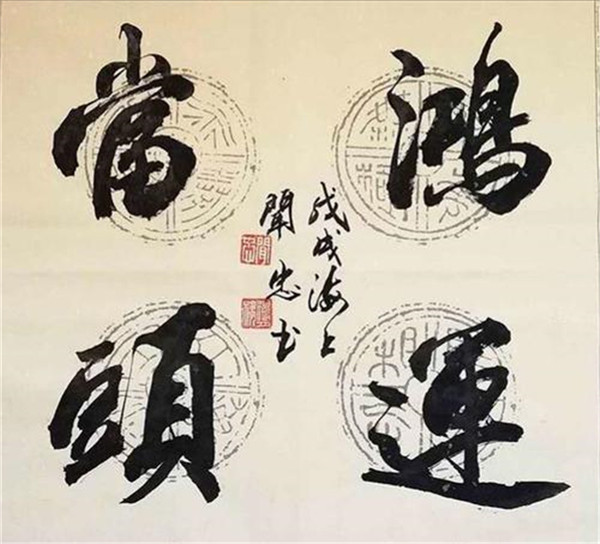 鴻運
當頭
戊戌海上
聞忠書